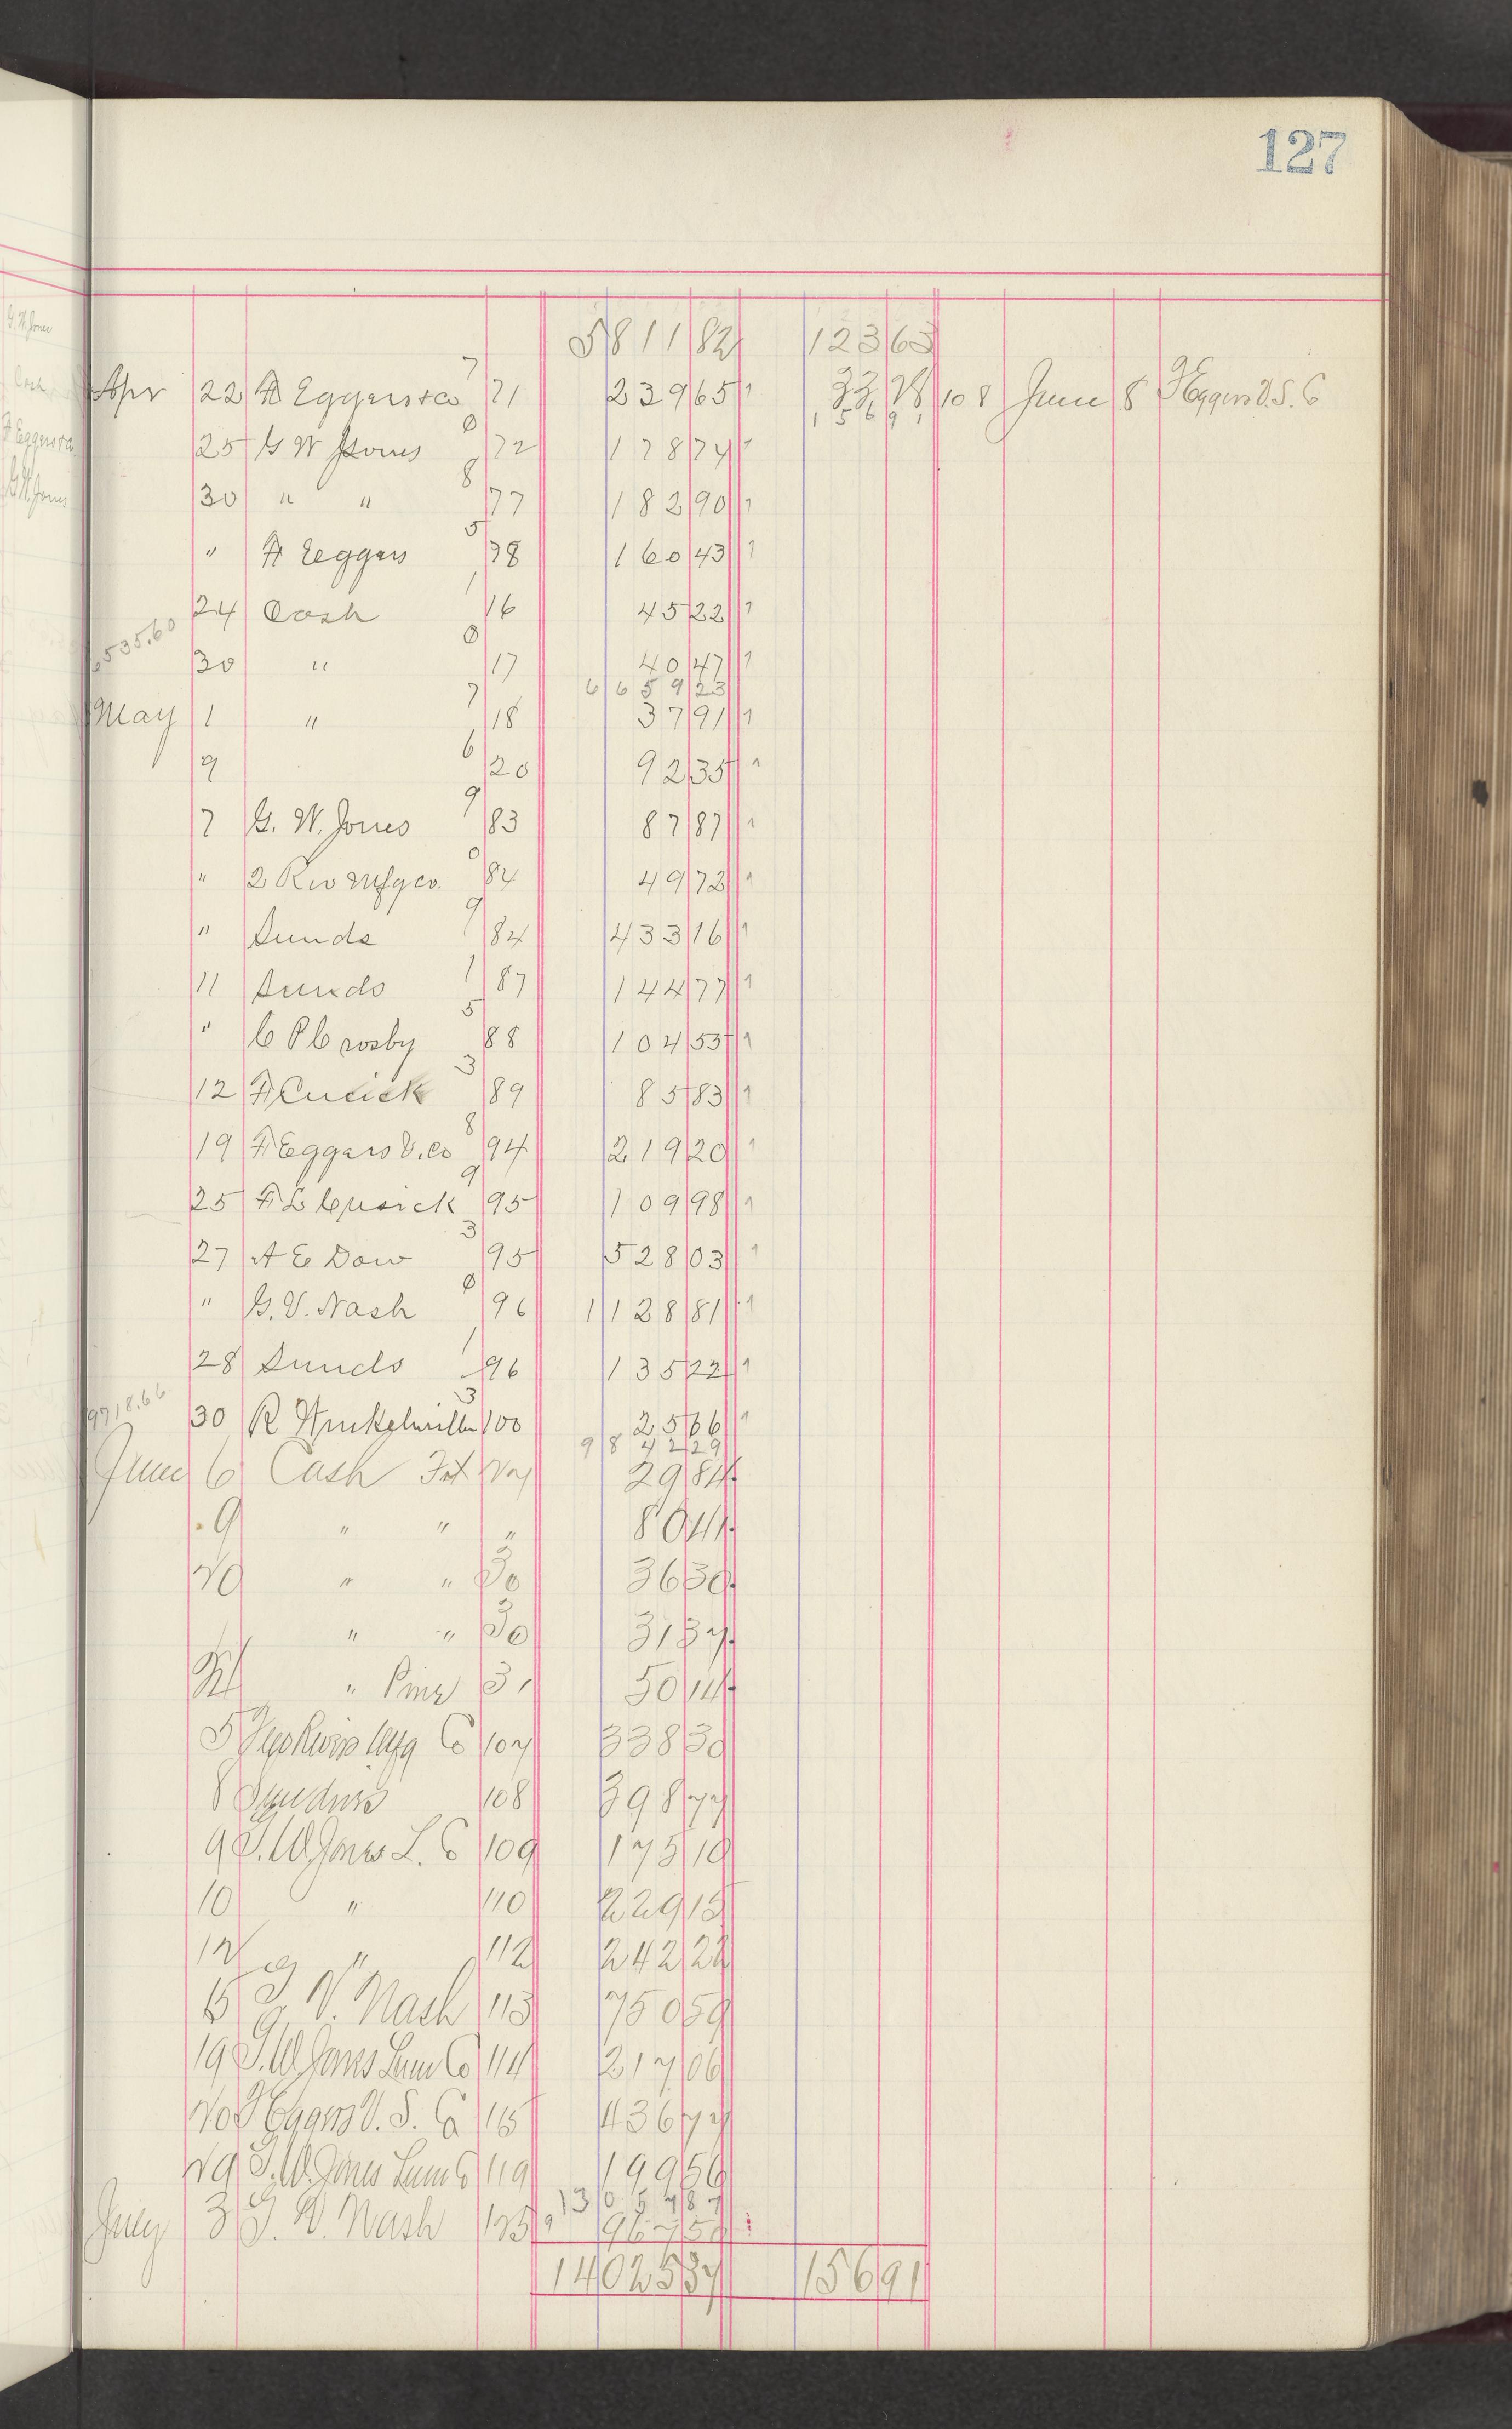 127
5811 82 123 63
Apr 22 F Eggers & Co 7 71 239 65 33 28 108 June 8 F Eggers V. S. Co
156 91
25 G W Jones 0 72 178 74
30 " " 8 77 182 90
" F Eggers 5 78 160 43
24 Cash 1 16 45 22
6535.60
30 " 0 17 40 47
6659 23
May 1 " 7 18 37 91
9 6 20 92 35
7 G. W. Jones 9 83 87 87
" 2 Riv Mfg co. 0 84 49 72
" Sunds 9 84 433 16
11 Sunds 1 87 144 77
" C P Crosby 5 88 104 53
12 F Cusick 3 89 85 83
19 F Eggers V. Co 8 94 219 20
25 F L Cusick 9 95 109 98
27 A E Dow 3 95 528 03
" G. V. Nash 0 96 1128 81
28 Sunds 1 96 135 22
9718.66
30 R 3 100 25 66
9842 29
June 6 Cash 29 84
9 " " " 80 44
20 " " 30 36 30
" " 30 31 37
24 " Pine 31 50 14
5 Two Rivers Mfg Co 107 338 30
8 108 398 77
9 G. W. Jones L. Co 109 175 10
10 " 110 229 15
12 " 112 242 22
15 G. V. Nash 113 750 59
19 G. W. Jones Lum Co 114 217 06
20 F Eggers V. S. Co 115 436 77
29 G. W. Jones Lum Co 119 199 56
13057 87
July 3 G. V. Nash 125 967 50
14025 37 156 91